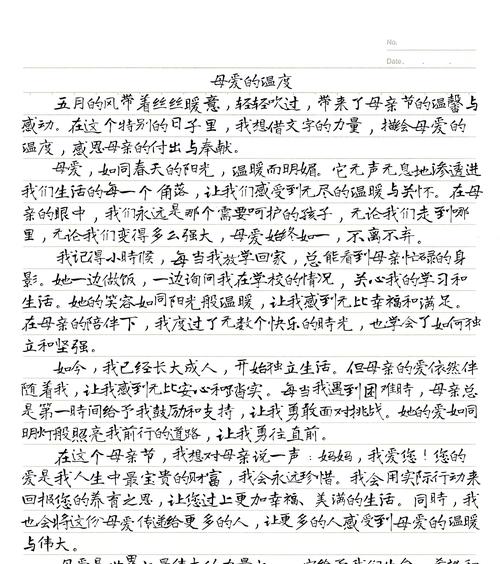 No.
Date.
母爱的温度
五月的风带着丝丝暖意，轻轻吹过，带来了母亲节的温馨与
感动。在这个特别的日子里，我想借文字的力量，描绘母爱的
温度，感恩母亲的付出与奉献。
母爱，如同春天的阳光，温暖而明媚。它无声无息地渗透进
我们生活的每一个角落，让我们感受到无尽的温暖与关怀。在母
亲的眼中，我们永远是那个需要呵护的孩子，无论我们走到哪
里，无论我们变得多么强大，母爱始终如一，不离不弃。
我记得小时候，每当我放学回家，总能看到母亲忙碌的身
影。她一边做饭，一边询问我在学校的情况，关心我的学习和
生活。她的笑容如同阳光般温暖，让我感到无比幸福和满足。
在母亲的陪伴下，我度过了无数个快乐的时光，也学会了如何独
立和坚强。
如今，我已经长大成人，开始独立生活。但母亲的爱依然伴
随着我，让我感到无比安心和踏实。每当我遇到困难时，母亲总
是第一时间给予我鼓励和支持，让我勇敢面对挑战。她的爱如同
明灯般照亮我前行的道路，让我勇往直前。
在这个母亲节，我想对母亲说一声：妈妈，我爱您！您的
爱是我人生中最宝贵的财富，我会永远珍惜。我会用实际行动来
回报您的养育之恩，让您过上更加幸福、美满的生活。同时，我
也会将这份母爱传递给更多的人，让更多的人感受到母爱的温暖
与伟大。